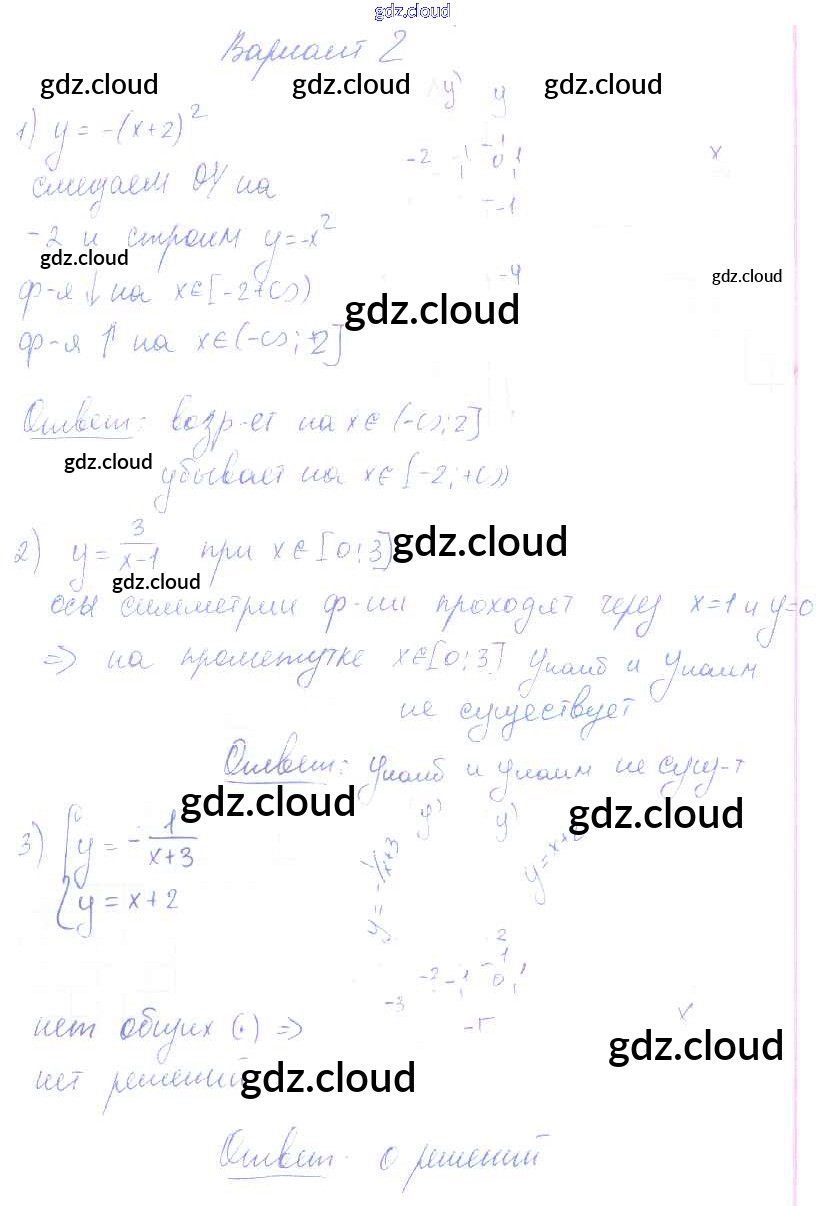 gdz.cloud
Вариант 2
gdz.cloud gdz.cloud gdz.cloud
1) y = -(x+2)²
смещаем OY на
-2 и строим y=-x²
gdz.cloud
ф-я ↓ на x∈[-2+∞)
ф-я ↑ на x∈(-∞;-2]
y' y
-2 -1 0 1 x
-1
-4
gdz.cloud
gdz.cloud
Ответ: возр-ет на x∈(-∞;2]
gdz.cloud
убывает на x∈[-2;+∞)
2) y = 3/(x-1) при x∈[0;3]
gdz.cloud
gdz.cloud
осы симметрии ф-ии проходят через x=1 и y=0
=> на прометутке x∈[0;3] yнаиб и yнаим
не существует
Ответ: yнаиб и yнаим не сущ-т
gdz.cloud gdz.cloud
3) { y = -1/(x+3)
y = x+2
y' y'
y=-1/x+3
y=x+2
2
1
-3 -2 -1 0 1
x
нет общих (·) =>
gdz.cloud
нет решений
gdz.cloud
Ответ: 0 решений